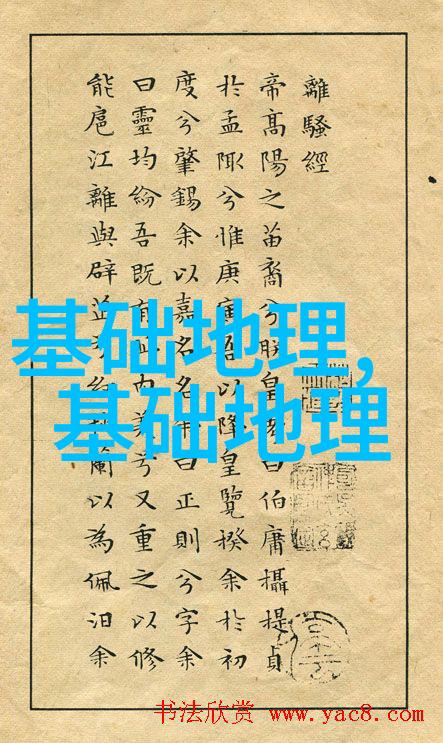 離騷經
帝高陽之苗裔兮朕皇考曰伯庸攝提貞
於孟陬兮惟庚寅吾以降皇覽揆余於初
度兮肇錫余以嘉名名余曰正則兮字余
曰靈均紛吾既有此內美兮又重之以修
能扈江離與辟芷兮紉秋蘭以為佩汨余
基础地理,
基础地理
书法欣赏 www.yac8.com